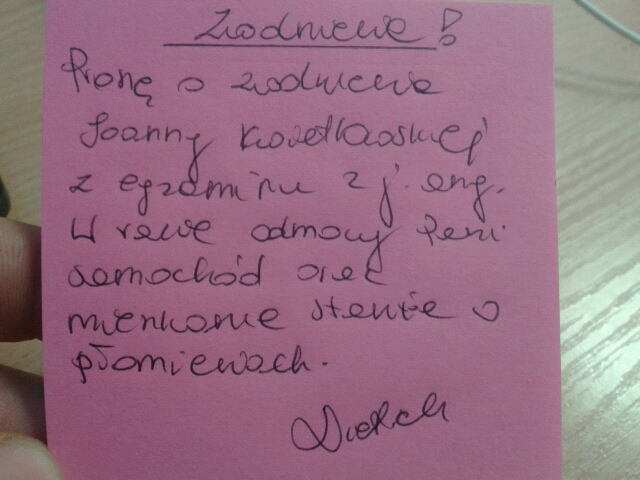 Zwolnienie!
Proszę o zwolnienie
Joanny
z egzaminu z j. ang.
W razie odmowy Pani
samochód oraz
mieszkanie stanie w
płomieniach.